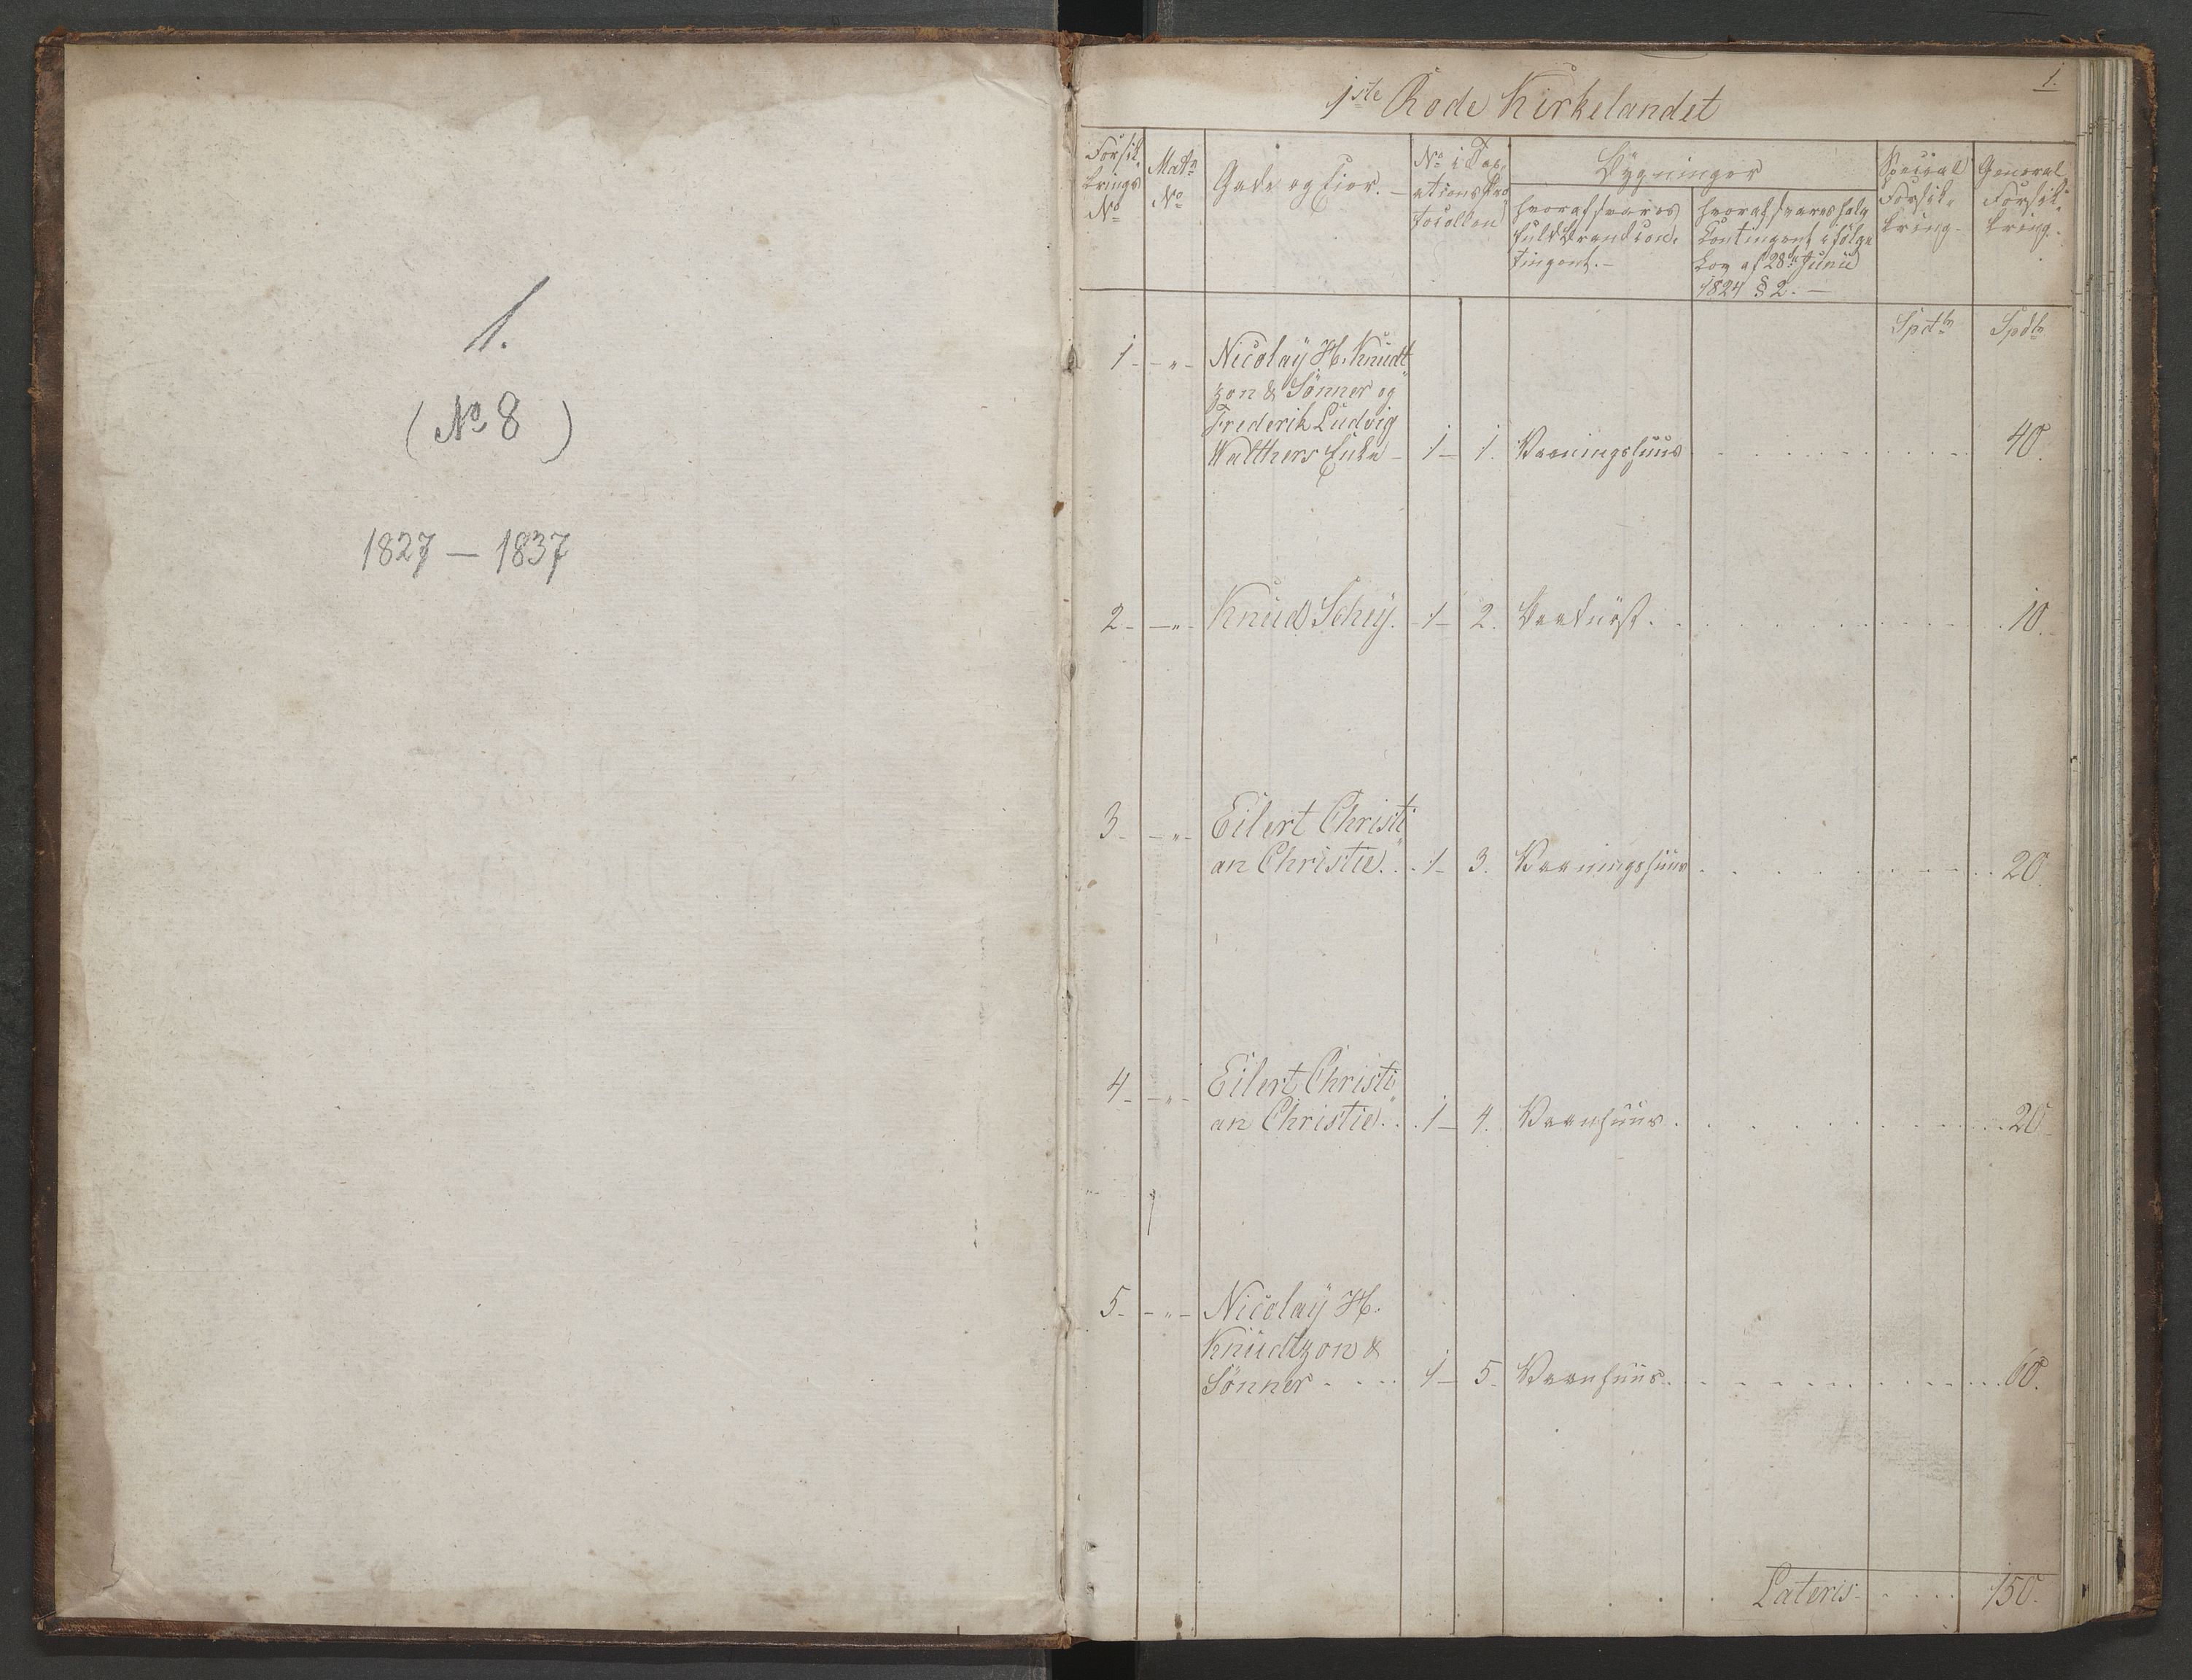 1.
(No 8)
1827 — 1837
1.
1ste Rode Kirkelandet
Forsik-
krings
No
Matr
No
Gade og Eier. -
No i Tax-
ationspro-
tocollen
Bygninger
hvoraf svares
fuld Brandcon-
tingent. -
hvoraf svares halv
Contingent ifølge
Lov af 28de Junii
1824 § 2. -
Special
Forsik-
kring.
General
Forsik-
kring.
Spdlr Spdlr
1 - - " - Nicolaÿ H. Knudt
zon & Sönner og
Frederik Ludvig
Walthers Enke - 1 - 1. Vaaningshuus 40.
2 - - " - Knud Schÿ. - 1 - 2. Baadnöst. 10.
3 - - " - Eilert Christi
an Christie. . 1 - 3. Vaaningshuus 20.
4 - - " - Eilert Christi
an Christie. . 1 - 4. Vaanhuus. 20.
5 - - " - Nicolaÿ H.
Knudtzon &
Sönner 1 - 5. Vaanhuus. 60.
Lateris 150.